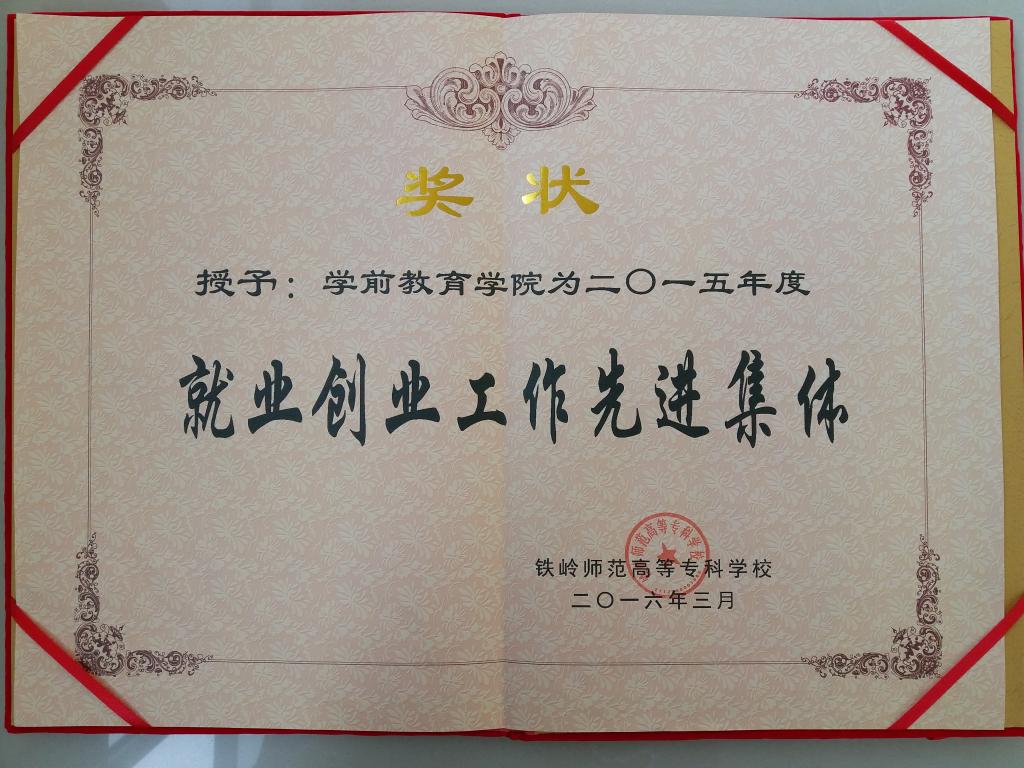 奖状
授予：学前教育学院为二〇一五年度
就业创业工作先进集体
师范高等专科学校
铁岭师范高等专科学校
二〇一六年三月